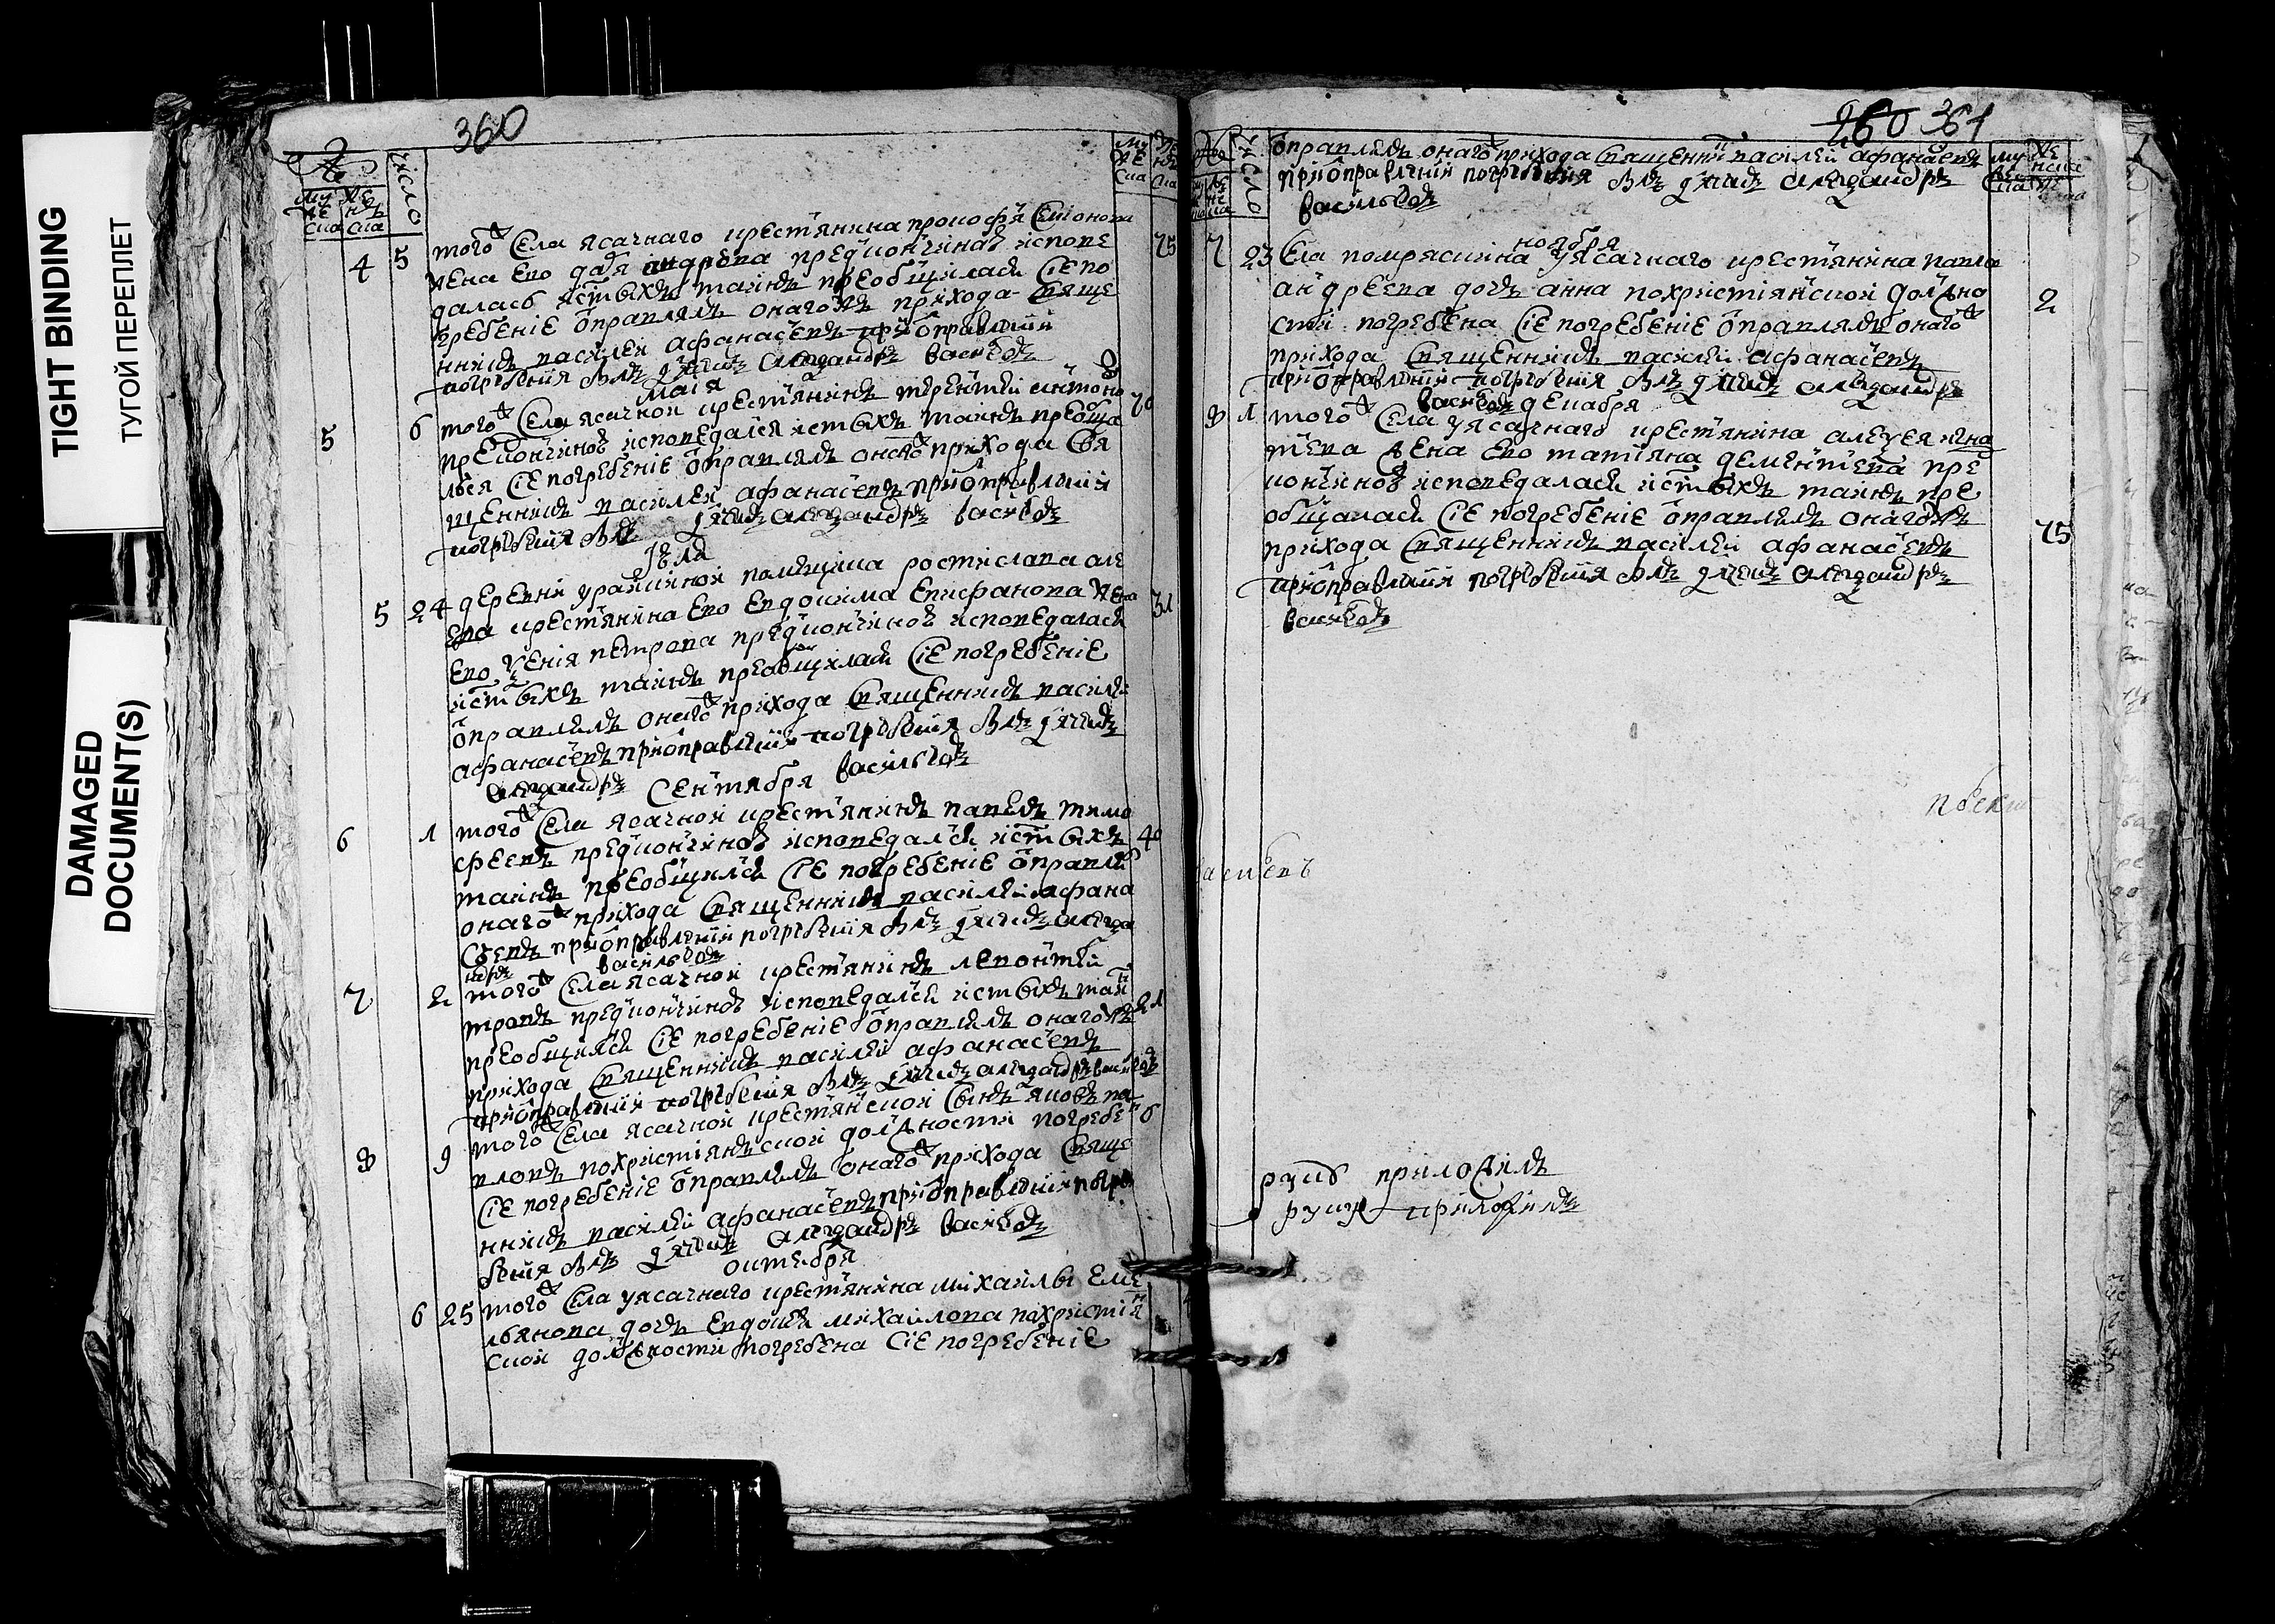 TIGHT BINDING
ТУГОЙ ПЕРЕПЛЕТ
DAMAGED
DOCUMENT(S)
360
№
число
муже ска
женъ ска
4 5 того ж села ясачнаго крестьянина прокофя
жена ево дарья преждкончиною испове
далась истых таинъ преобщилась сие по
гребение оправлялъ онагожъ прихода свяще
нникъ василей афанасевъ при оправлении
погребения былъ дячекъ александръ василевъ
75
маия
5 6 того ж села ясачной крестьянинъ терентей антоно
предкончиною исповедался истыхъ таинъ преобща
лься сие погребение оправлялъ онагож прихода свя
щенникъ василей афанасевъ при оправлении
погребения былъ дячекъ александръ василевъ
70
июля
5 24 деревни помещика ростислава але
ева крестьянина ево евдокима епифанова жена
ево ксения петрова предкончиною исповедалась
истыхъ таинъ преобщилась сие погребение
оправлялъ онагож прихода священникъ василей
афанасевъ при оправлении погребения былъ дячекъ
александръ василевъ
31
сентября
6 1 того ж села ясачной крестьянинъ павелъ тимо
феевъ предкончиною исповедался истыхъ
таинъ преобщился сие погребение оправлял
онагож прихода священникъ василей афана
севъ при оправлении погребения былъ дячекъ алекса
ндръ василевъ
40
7 2 того ж села ясачной крестьянинъ левонтей
предкончиною исповедался истыхъ таин
преобщился сие погребение оправлялъ онагожъ
прихода священникъ василей афанасевъ
при оправлении погребения былъ дячекъ александръ василевъ
21
8 9 того ж села ясачной крестьянской сынъ яковъ па
вловъ похристиянской должности погребен
сие погребение оправлялъ онагож прихода свяще
нникъ василей афанасевъ при оправлении погре
бения былъ дячекъ александръ василевъ
6
октебря
6 25 того ж села уясачнаго крестьянина михайлы еме
льянова дочь евдокия михайлова похристиян
ской должности погребена сие погребение
260 361
№
число
муже ска
женска
оправлялъ онагож прихода священник василей афанасевъ
при оправлении погребения былъ дячекъ александръ
василевъ
ноября
7 23 села помряскина уясачнаго крестьянина павла
андреева дочь анна похристиянской должно
сти погребена сие погребение оправлялъ онагож
прихода священникъ василей афанасевъ
при оправлении погребения былъ дячекъ александръ
василевъ
2
декабря
8 1 того ж села уясачнаго крестьянина алексея игна
тева жена ево татьяна дементева пре
кончиною исповедалась истыхъ таинъ пре
общалась сие погребение оправлялъ онагожъ
прихода священникъ василей афанасевъ
при оправлении погребения былъ дячекъ александръ
василевъ
75
руку приложилъ
руку приложилъ